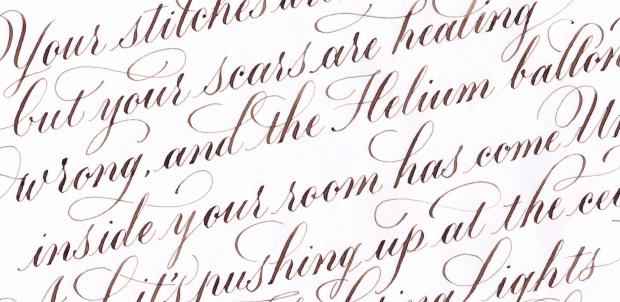 Your stitches
but your scars are healing
wrong, and the Helium ballon
inside your room has come Un
pushing up at the cei
it's Lights